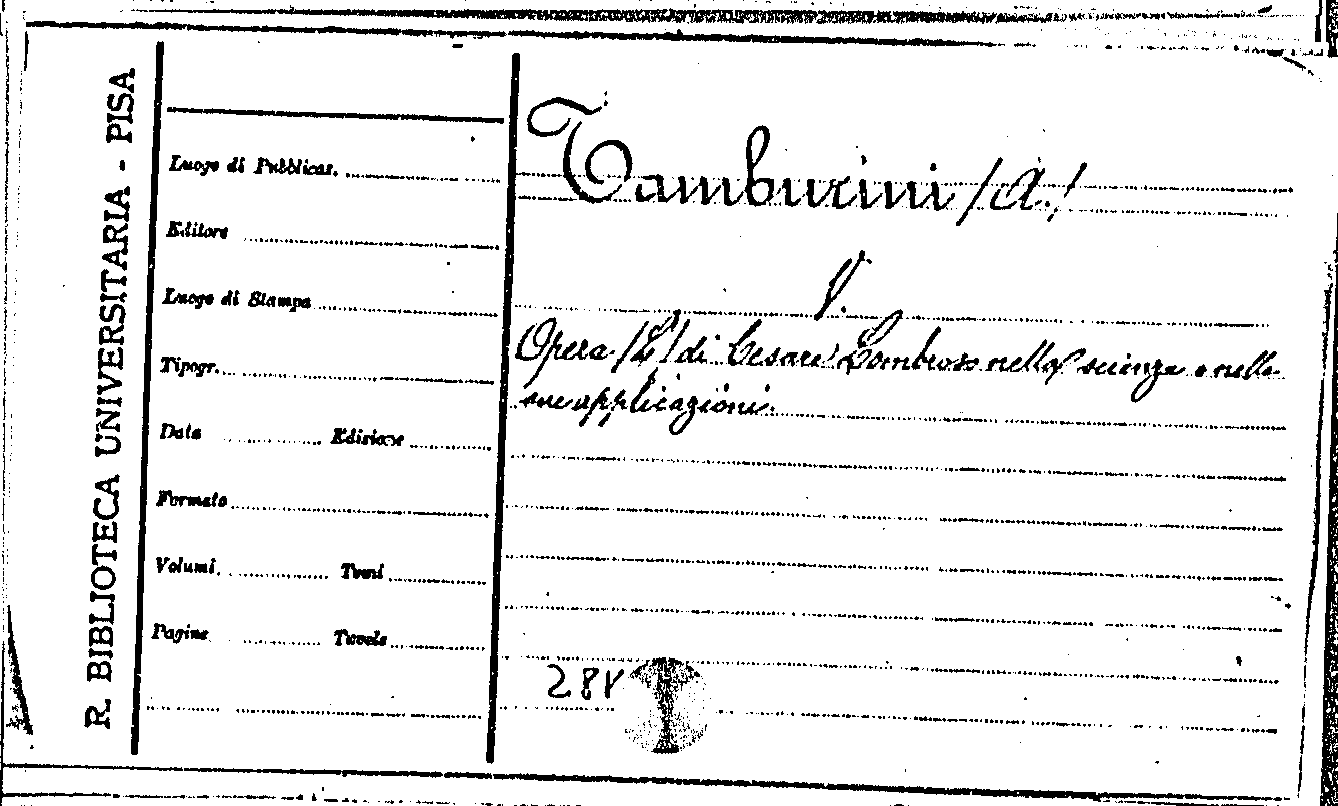 R. BIBLIOTECA UNIVERSITARIA - PISA
Luogo di Pubblicaz.
Editore
Luogo di Stampa
Tipogr.
Data Edizione
Formato
Volumi Tomi
Pagine Tavole
Tamburini /A./
V.
Opera /L'/ di Cesare Lombroso nella scienza e nelle
sue applicazioni.
288